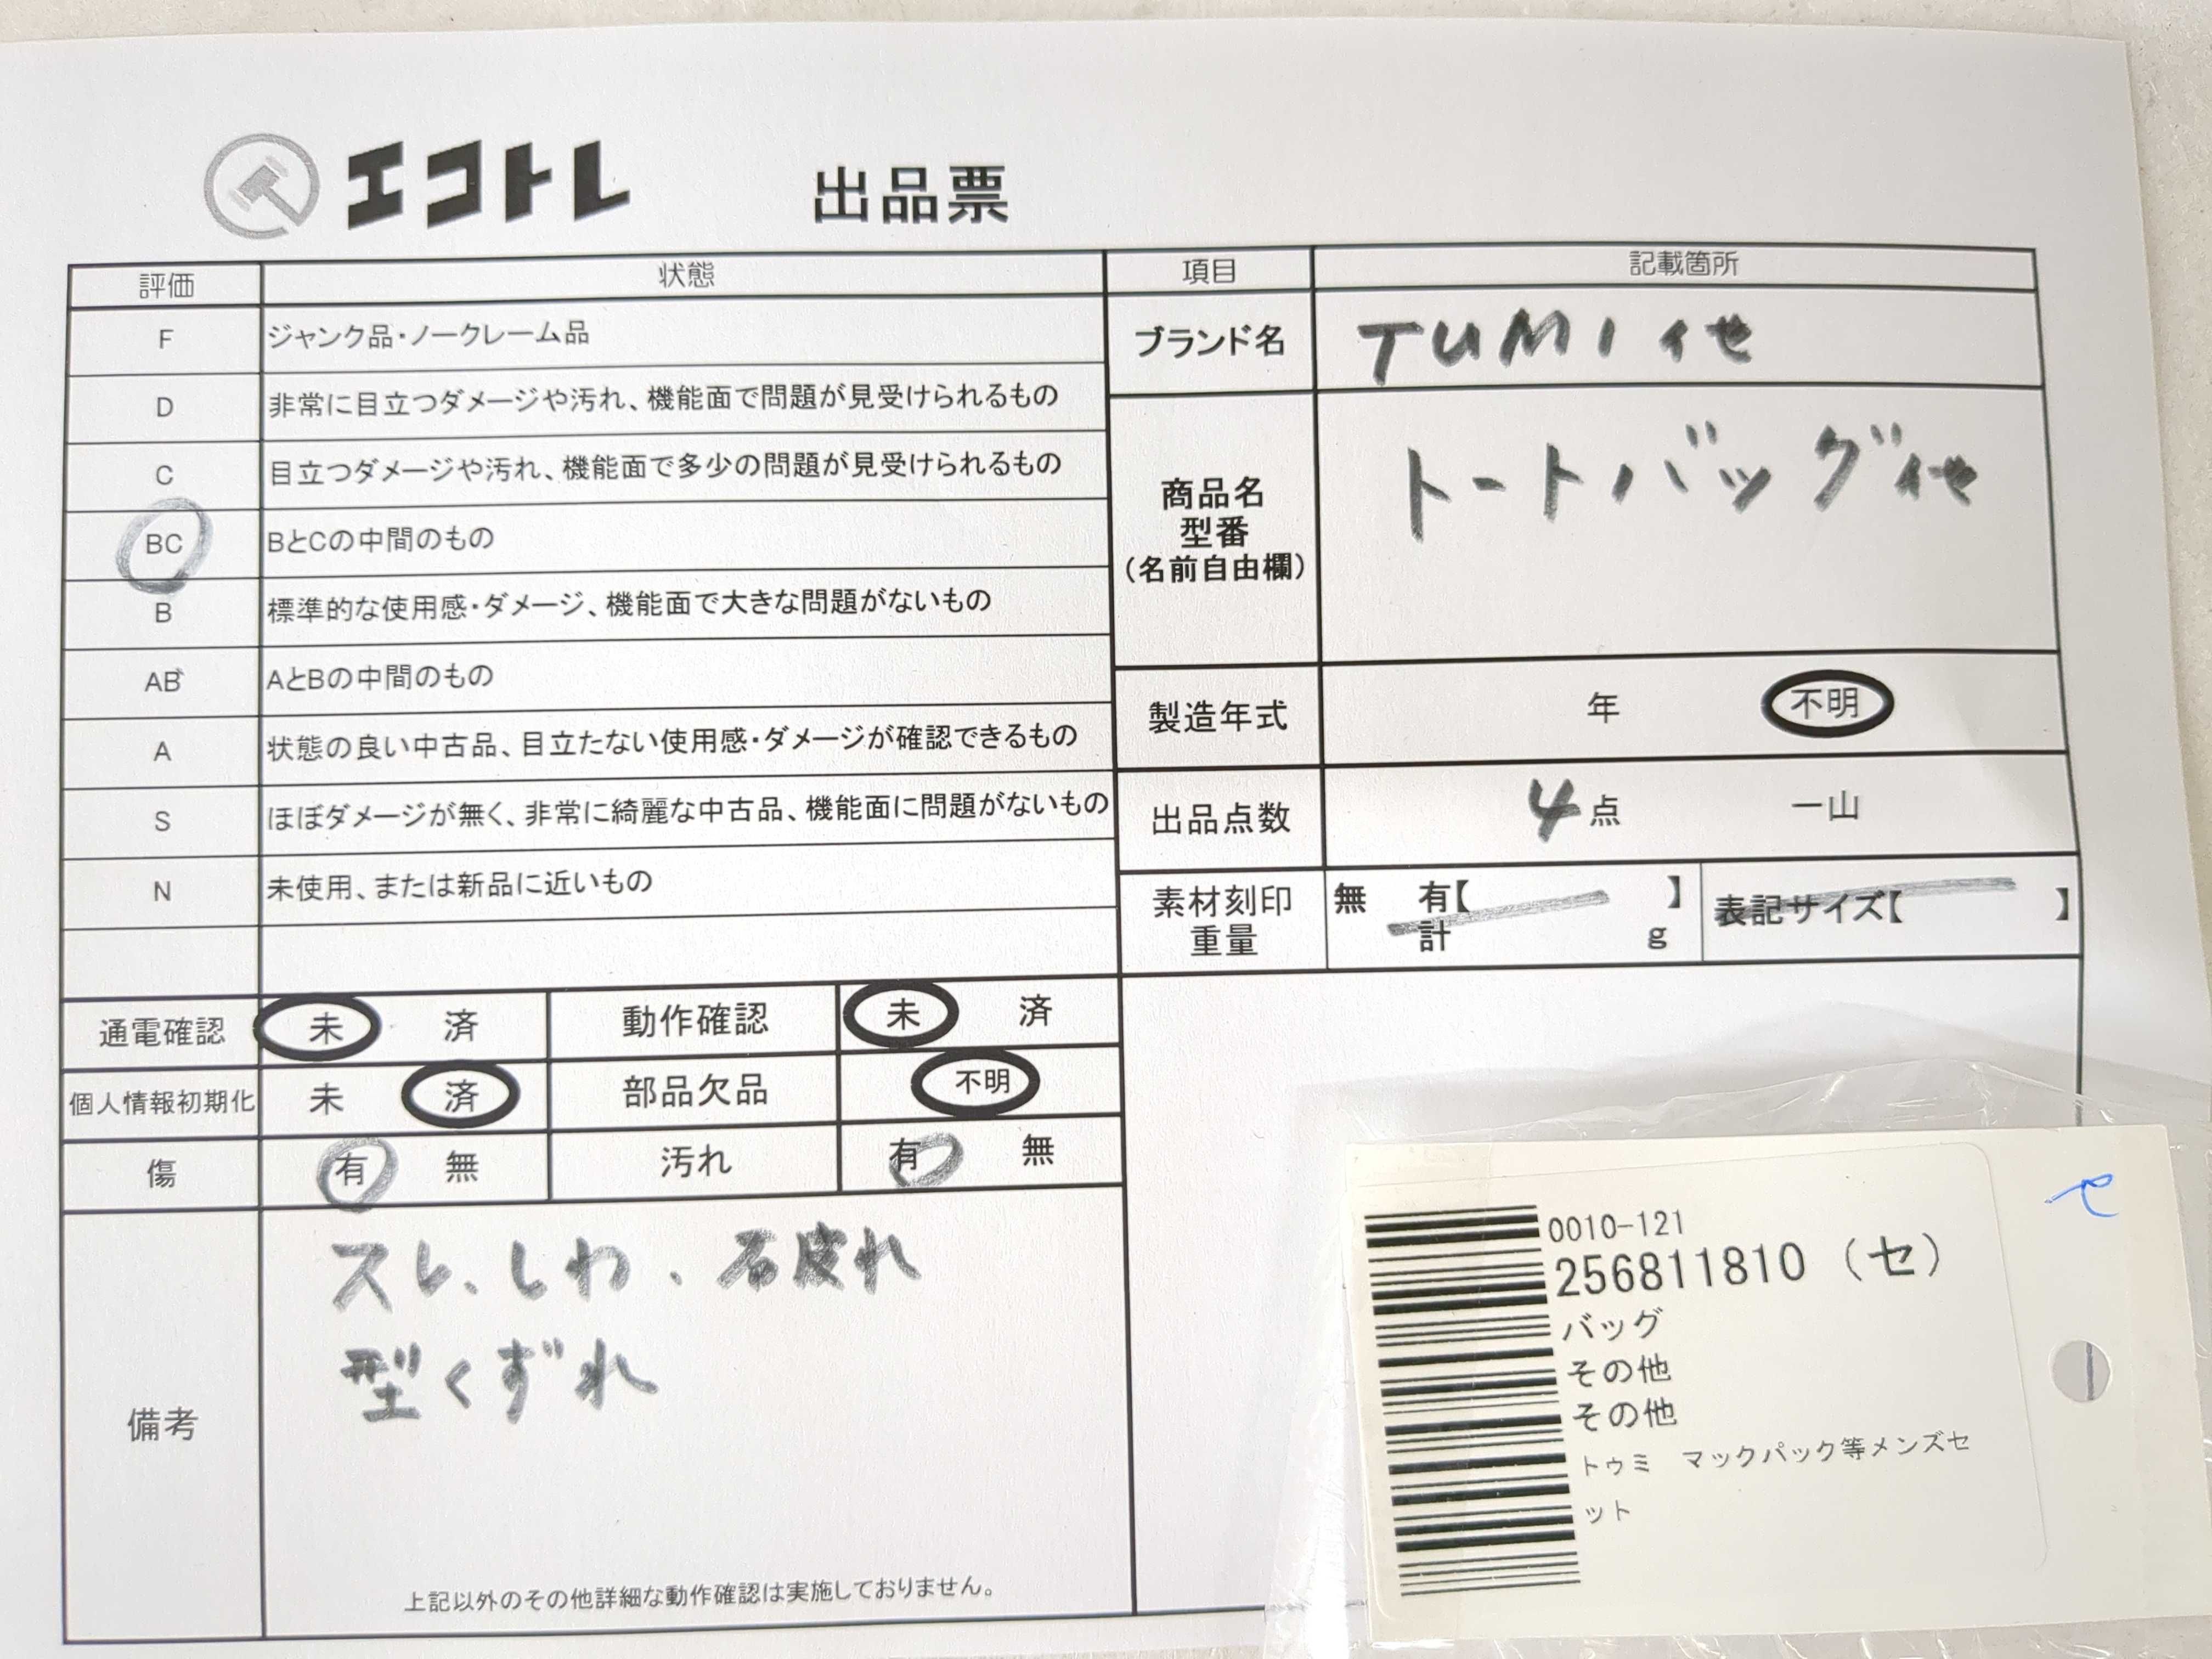 エコトレ 出品票
評価 状態
F ジャンク品・ノークレーム品
D 非常に目立つダメージや汚れ、機能面で問題が見受けられるもの
C 目立つダメージや汚れ、機能面で多少の問題が見受けられるもの
BC BとCの中間のもの
B 標準的な使用感・ダメージ、機能面で大きな問題がないもの
AB AとBの中間のもの
A 状態の良い中古品、目立たない使用感・ダメージが確認できるもの
S ほぼダメージが無く、非常に綺麗な中古品、機能面に問題がないもの
N 未使用、または新品に近いもの
項目 記載箇所
ブランド名 TUMI 他
商品名
型番
（名前自由欄）
トートバッグ他
製造年式 年 不明
出品点数 4点 一山
素材刻印
重量
無 有【 】
計 g
表記サイズ【 】
通電確認 未 済 動作確認 未 済
個人情報初期化 未 済 部品欠品 不明
傷 有 無 汚れ 有 無
備考
スレ、しわ、破れ
型くずれ
上記以外のその他詳細な動作確認は実施しておりません。
セ
0010-121
256811810（セ）
バッグ
その他
その他
トゥミ マックパック等メンズセ
ット